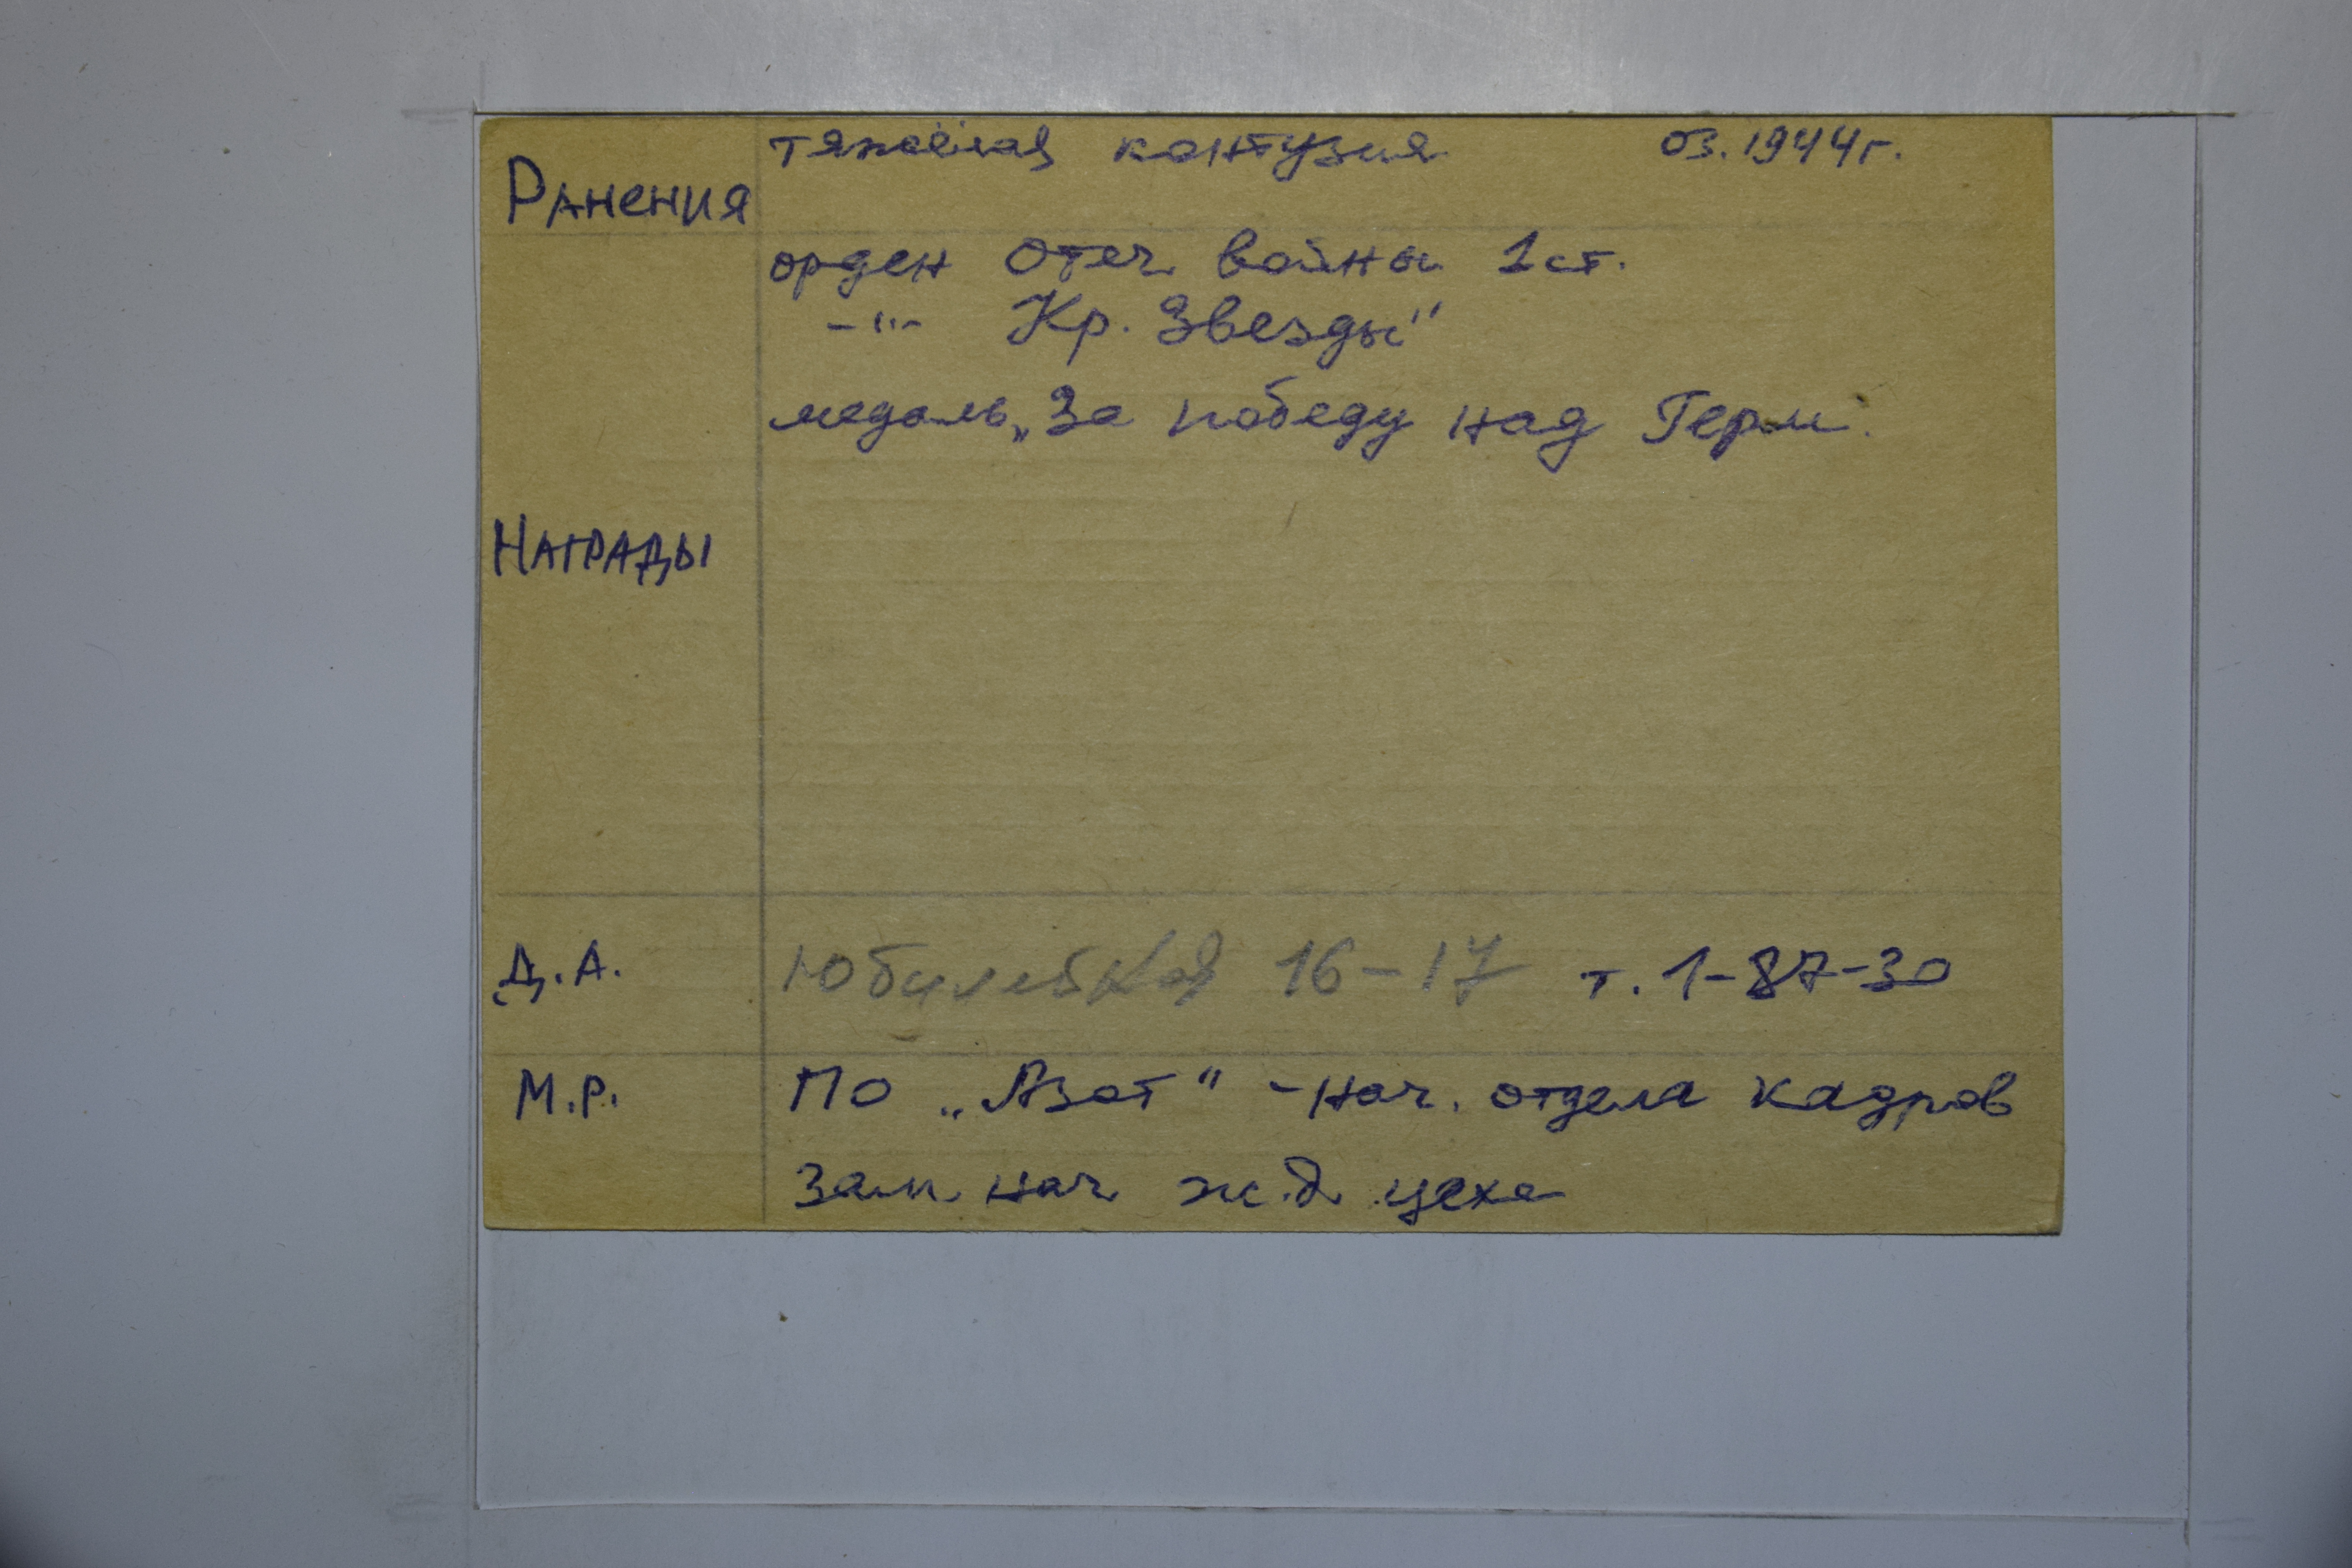 Ранения тяжёлая контузия 03.1944г.
орден Отеч войны 1 ст.
-"- Кр. Звезды"
медаль „За победу над Герм.
Награды
Д.А. Юбилейная 16-17 т. 1-87-30
М.Р. ПО „Азот" - нач. отдела кадров
зам. нач ж.д. цеха